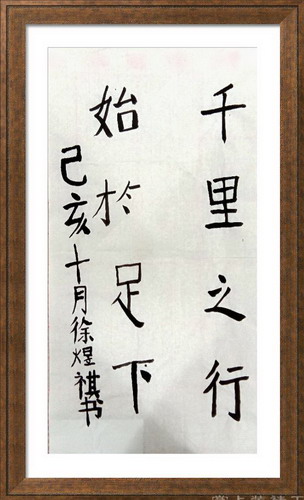 千里之行
始於足下
己亥十月徐煜祺书